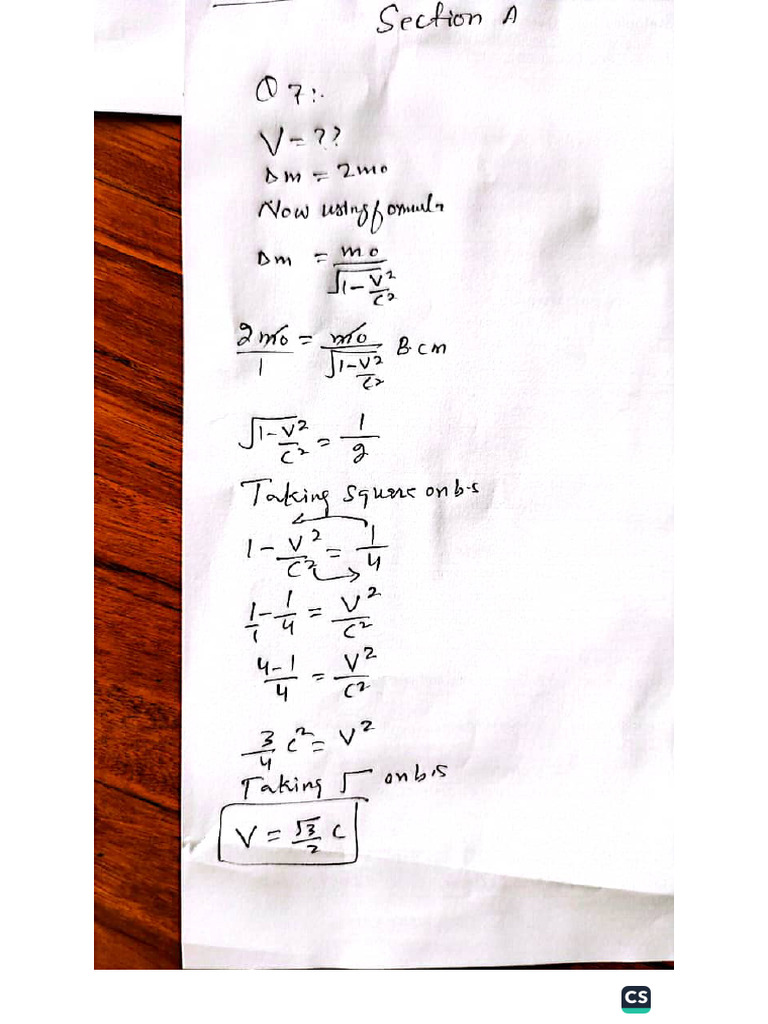 Section A
Q 7:-
V = ??
Δm = 2mo
Now using formula
Δm = mo / √1-V²/C²
2mo/1 = mo / √1-V²/C² B.cm
√1-V²/C² = 1/2
Taking square on b.s
1 - V²/C² = 1/4
1/1 - 1/4 = V²/C²
4-1/4 = V²/C²
3/4 C² = V²
Taking √ on b.s
V = √3/2 C
CS